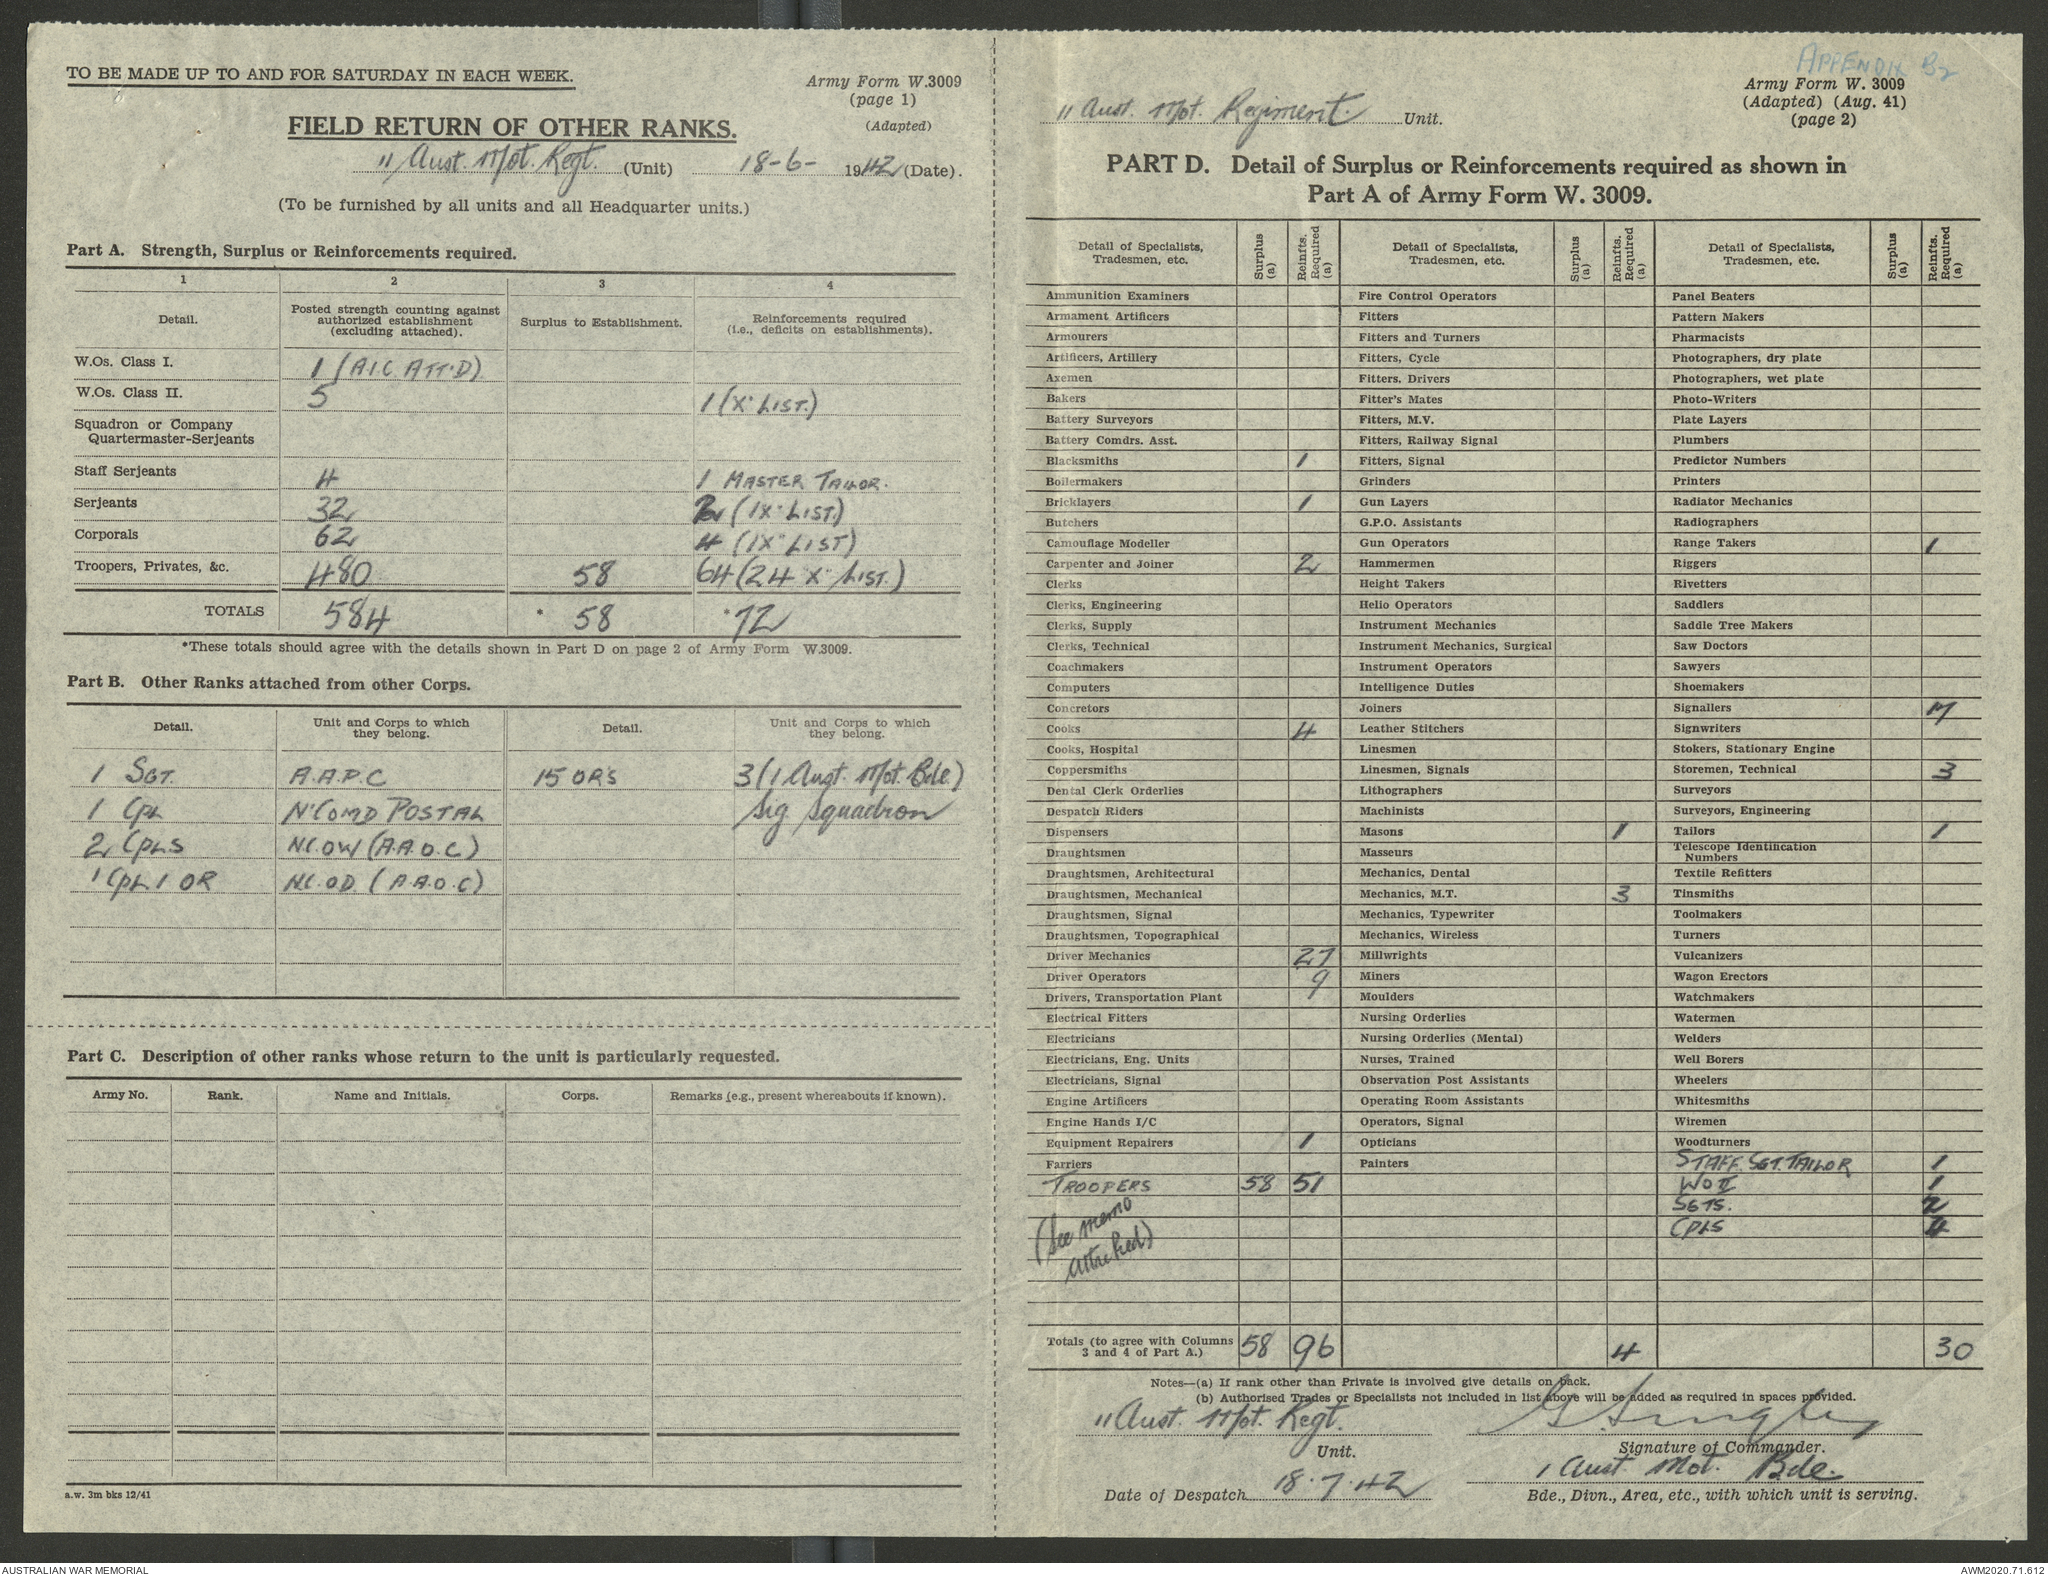 TO BE MADE UP TO AND FOR SATURDAY IN EACH WEEK.
Army Form W.3009
(page 1)
(Adapted)
FIELD RETURN OF OTHER RANKS.
11 Aust. Mot. Regt. (Unit) 18-6- 1942 (Date).
(To be furnished by all units and all Headquarter units.)
Part A. Strength, Surplus or Reinforcements required.
1 2 3 4
Detail. Posted strength counting against authorized establishment (excluding attached). Surplus to Establishment. Reinforcements required (i.e., deficits on establishments).
W.Os. Class I. 1 (A.I.C. ATT'D)
W.Os. Class II. 5 1 (X' LIST.)
Squadron or Company
Quartermaster-Serjeants
Staff Serjeants 4 1 MASTER TAILOR.
Serjeants 32 2 (1 X' LIST.)
Corporals 62 4 (1 X' LIST)
Troopers, Privates, &c. 480 58 64 (24 "X" LIST.)
TOTALS 584 * 58 * 72
*These totals should agree with the details shown in Part D on page 2 of Army Form W.3009.
Part B. Other Ranks attached from other Corps.
Detail. Unit and Corps to which they belong. Detail. Unit and Corps to which they belong.
1 SGT. A.A.P.C 15 ORS 3 (1 Aust. Mot. Bde.)
1 CPL N'COMD POSTAL Sig Squadron
2 CPLS N.C.OW (A.A.O.C)
1 CPL 1 OR N.C.OD (A.A.O.C)
Part C. Description of other ranks whose return to the unit is particularly requested.
Army No. Rank. Name and Initials. Corps. Remarks (e.g., present whereabouts if known).
a.w. 3m bks 12/41
APPENDIX B2
Army Form W. 3009
(Adapted) (Aug. 41)
(page 2)
11 Aust. Mot. Regiment. Unit.
PART D. Detail of Surplus or Reinforcements required as shown in
Part A of Army Form W. 3009.
Detail of Specialists, Tradesmen, etc. Surplus (a) Reinfts. Required (a) Detail of Specialists, Tradesmen, etc. Surplus (a) Reinfts. Required (a) Detail of Specialists, Tradesmen, etc. Surplus (a) Reinfts. Required (a)
Ammunition Examiners Fire Control Operators Panel Beaters
Armament Artificers Fitters Pattern Makers
Armourers Fitters and Turners Pharmacists
Artificers, Artillery Fitters, Cycle Photographers, dry plate
Axemen Fitters, Drivers Photographers, wet plate
Bakers Fitter's Mates Photo-Writers
Battery Surveyors Fitters, M.V. Plate Layers
Battery Comdrs. Asst. Fitters, Railway Signal Plumbers
Blacksmiths 1 Fitters, Signal Predictor Numbers
Boilermakers Grinders Printers
Bricklayers 1 Gun Layers Radiator Mechanics
Butchers G.P.O. Assistants Radiographers
Camouflage Modeller Gun Operators Range Takers 1
Carpenter and Joiner 2 Hammermen Riggers
Clerks Height Takers Rivetters
Clerks, Engineering Helio Operators Saddlers
Clerks, Supply Instrument Mechanics Saddle Tree Makers
Clerks, Technical Instrument Mechanics, Surgical Saw Doctors
Coachmakers Instrument Operators Sawyers
Computers Intelligence Duties Shoemakers
Concretors Joiners Signallers 17
Cooks 4 Leather Stitchers Signwriters
Cooks, Hospital Linesmen Stokers, Stationary Engine
Coppersmiths Linesmen, Signals Storemen, Technical 3
Dental Clerk Orderlies Lithographers Surveyors
Despatch Riders Machinists Surveyors, Engineering
Dispensers Masons 1 Tailors 1
Draughtsmen Masseurs Telescope Identification Numbers
Draughtsmen, Architectural Mechanics, Dental Textile Refitters
Draughtsmen, Mechanical Mechanics, M.T. 3 Tinsmiths
Draughtsmen, Signal Mechanics, Typewriter Toolmakers
Draughtsmen, Topographical Mechanics, Wireless Turners
Driver Mechanics 27 Millwrights Vulcanizers
Driver Operators 9 Miners Wagon Erectors
Drivers, Transportation Plant Moulders Watchmakers
Electrical Fitters Nursing Orderlies Watermen
Electricians Nursing Orderlies (Mental) Welders
Electricians, Eng. Units Nurses, Trained Well Borers
Electricians, Signal Observation Post Assistants Wheelers
Engine Artificers Operating Room Assistants Whitesmiths
Engine Hands I/C Operators, Signal Wiremen
Equipment Repairers 1 Opticians Woodturners
Farriers Painters STAFF. SGT. TAILOR 1
TROOPERS 58 51 WO II 1
SGTS. 2
(See memo CPLS 4
attached)
Totals (to agree with Columns 3 and 4 of Part A.) 58 96 4 30
Notes—(a) If rank other than Private is involved give details on back.
(b) Authorised Trades or Specialists not included in list above will be added as required in spaces provided.
11 Aust. Mot. Regt.
Unit. Signature of Commander.
1 Aust. Mot. Bde.
Date of Despatch 18.7.42 Bde., Divn., Area, etc., with which unit is serving.
AUSTRALIAN WAR MEMORIAL AWM2020.71.612